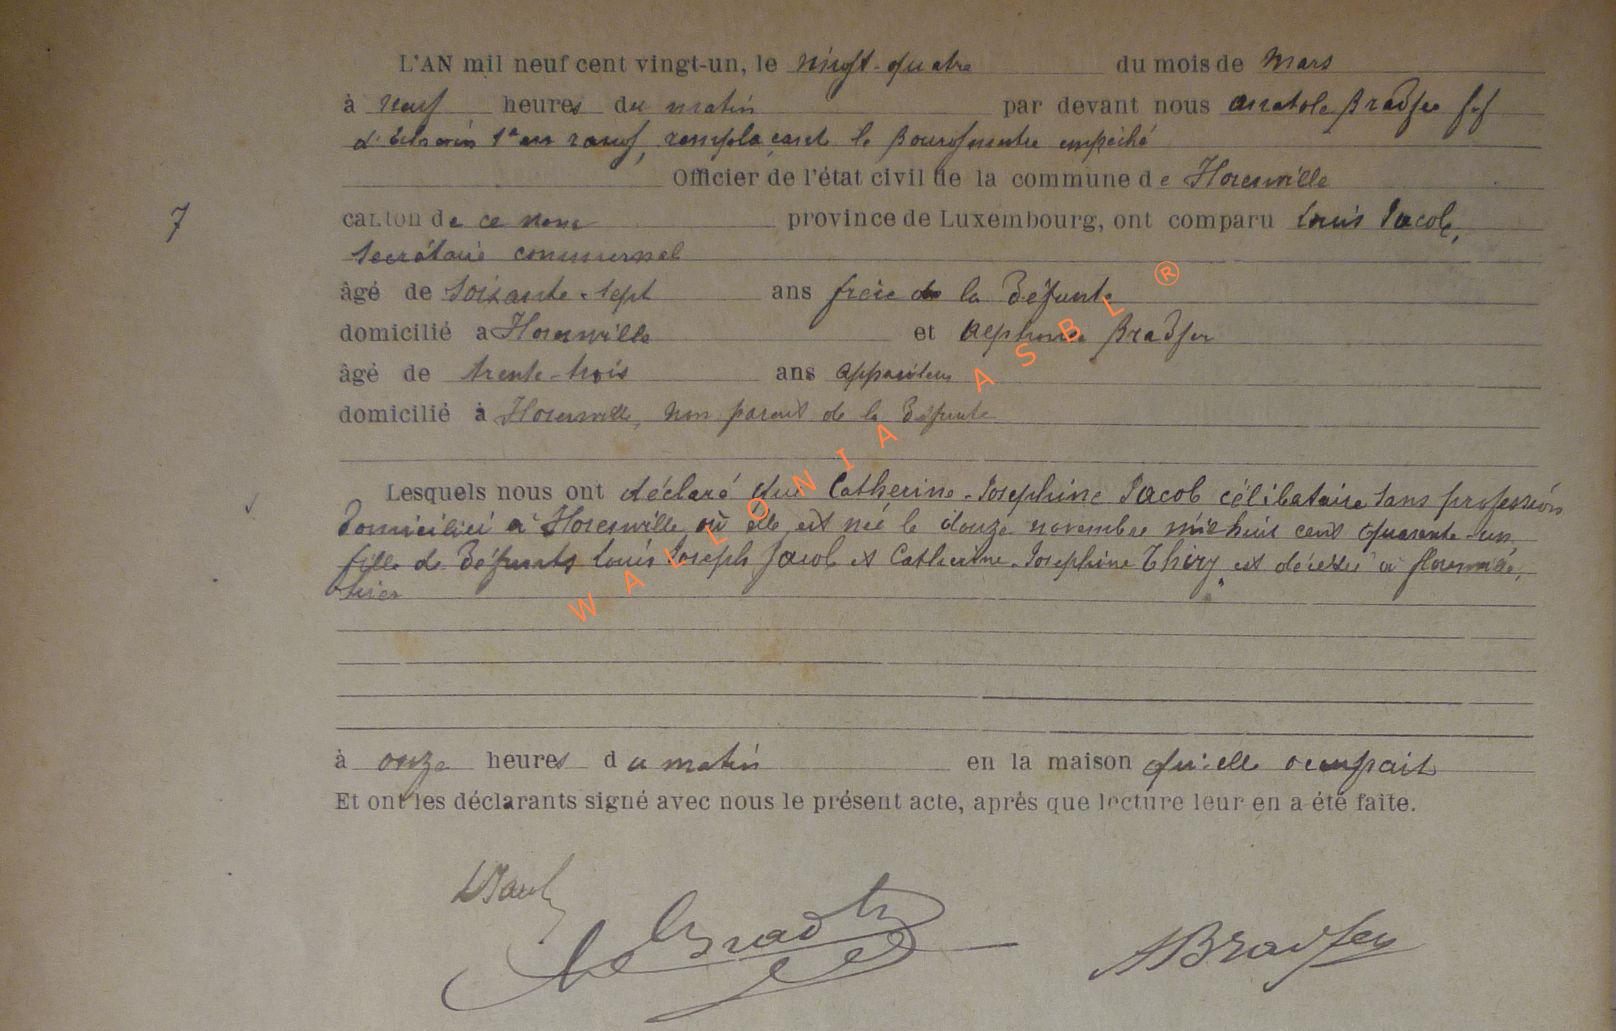 L'AN mil neuf cent vingt-un, le vingt-quatre du mois de Mars
à neuf heures du matin par devant nous Anatole Bradfer ff
d'Echevin 1er en rang, remplaçant le Bourgmestre empêché
Officier de l'état civil de la commune de Florenville
7 canton de ce nom province de Luxembourg, ont comparu Louis Jacob,
Secrétaire communal
âgé de soixante-sept ans frère de la Défunte
domicilié à Florenville et Alphonse Bradfer
âgé de trente-trois ans appariteur
domicilié à Florenville, non parent de la Défunte
Lesquels nous ont déclaré que Catherine-Josephine Jacob célibataire sans profession
Domiciliée à Florenville où elle est née le douze novembre mil huit cent quarante-un,
fille de Défunts Louis Joseph Jacob et Catherine-Josephine Thiry est décédée à Florenville,
hier
à onze heures du matin en la maison qu'elle occupait
Et ont les déclarants signé avec nous le présent acte, après que lecture leur en a été faite.
LJacob
ABradfer
WALLONIA ASBL ®